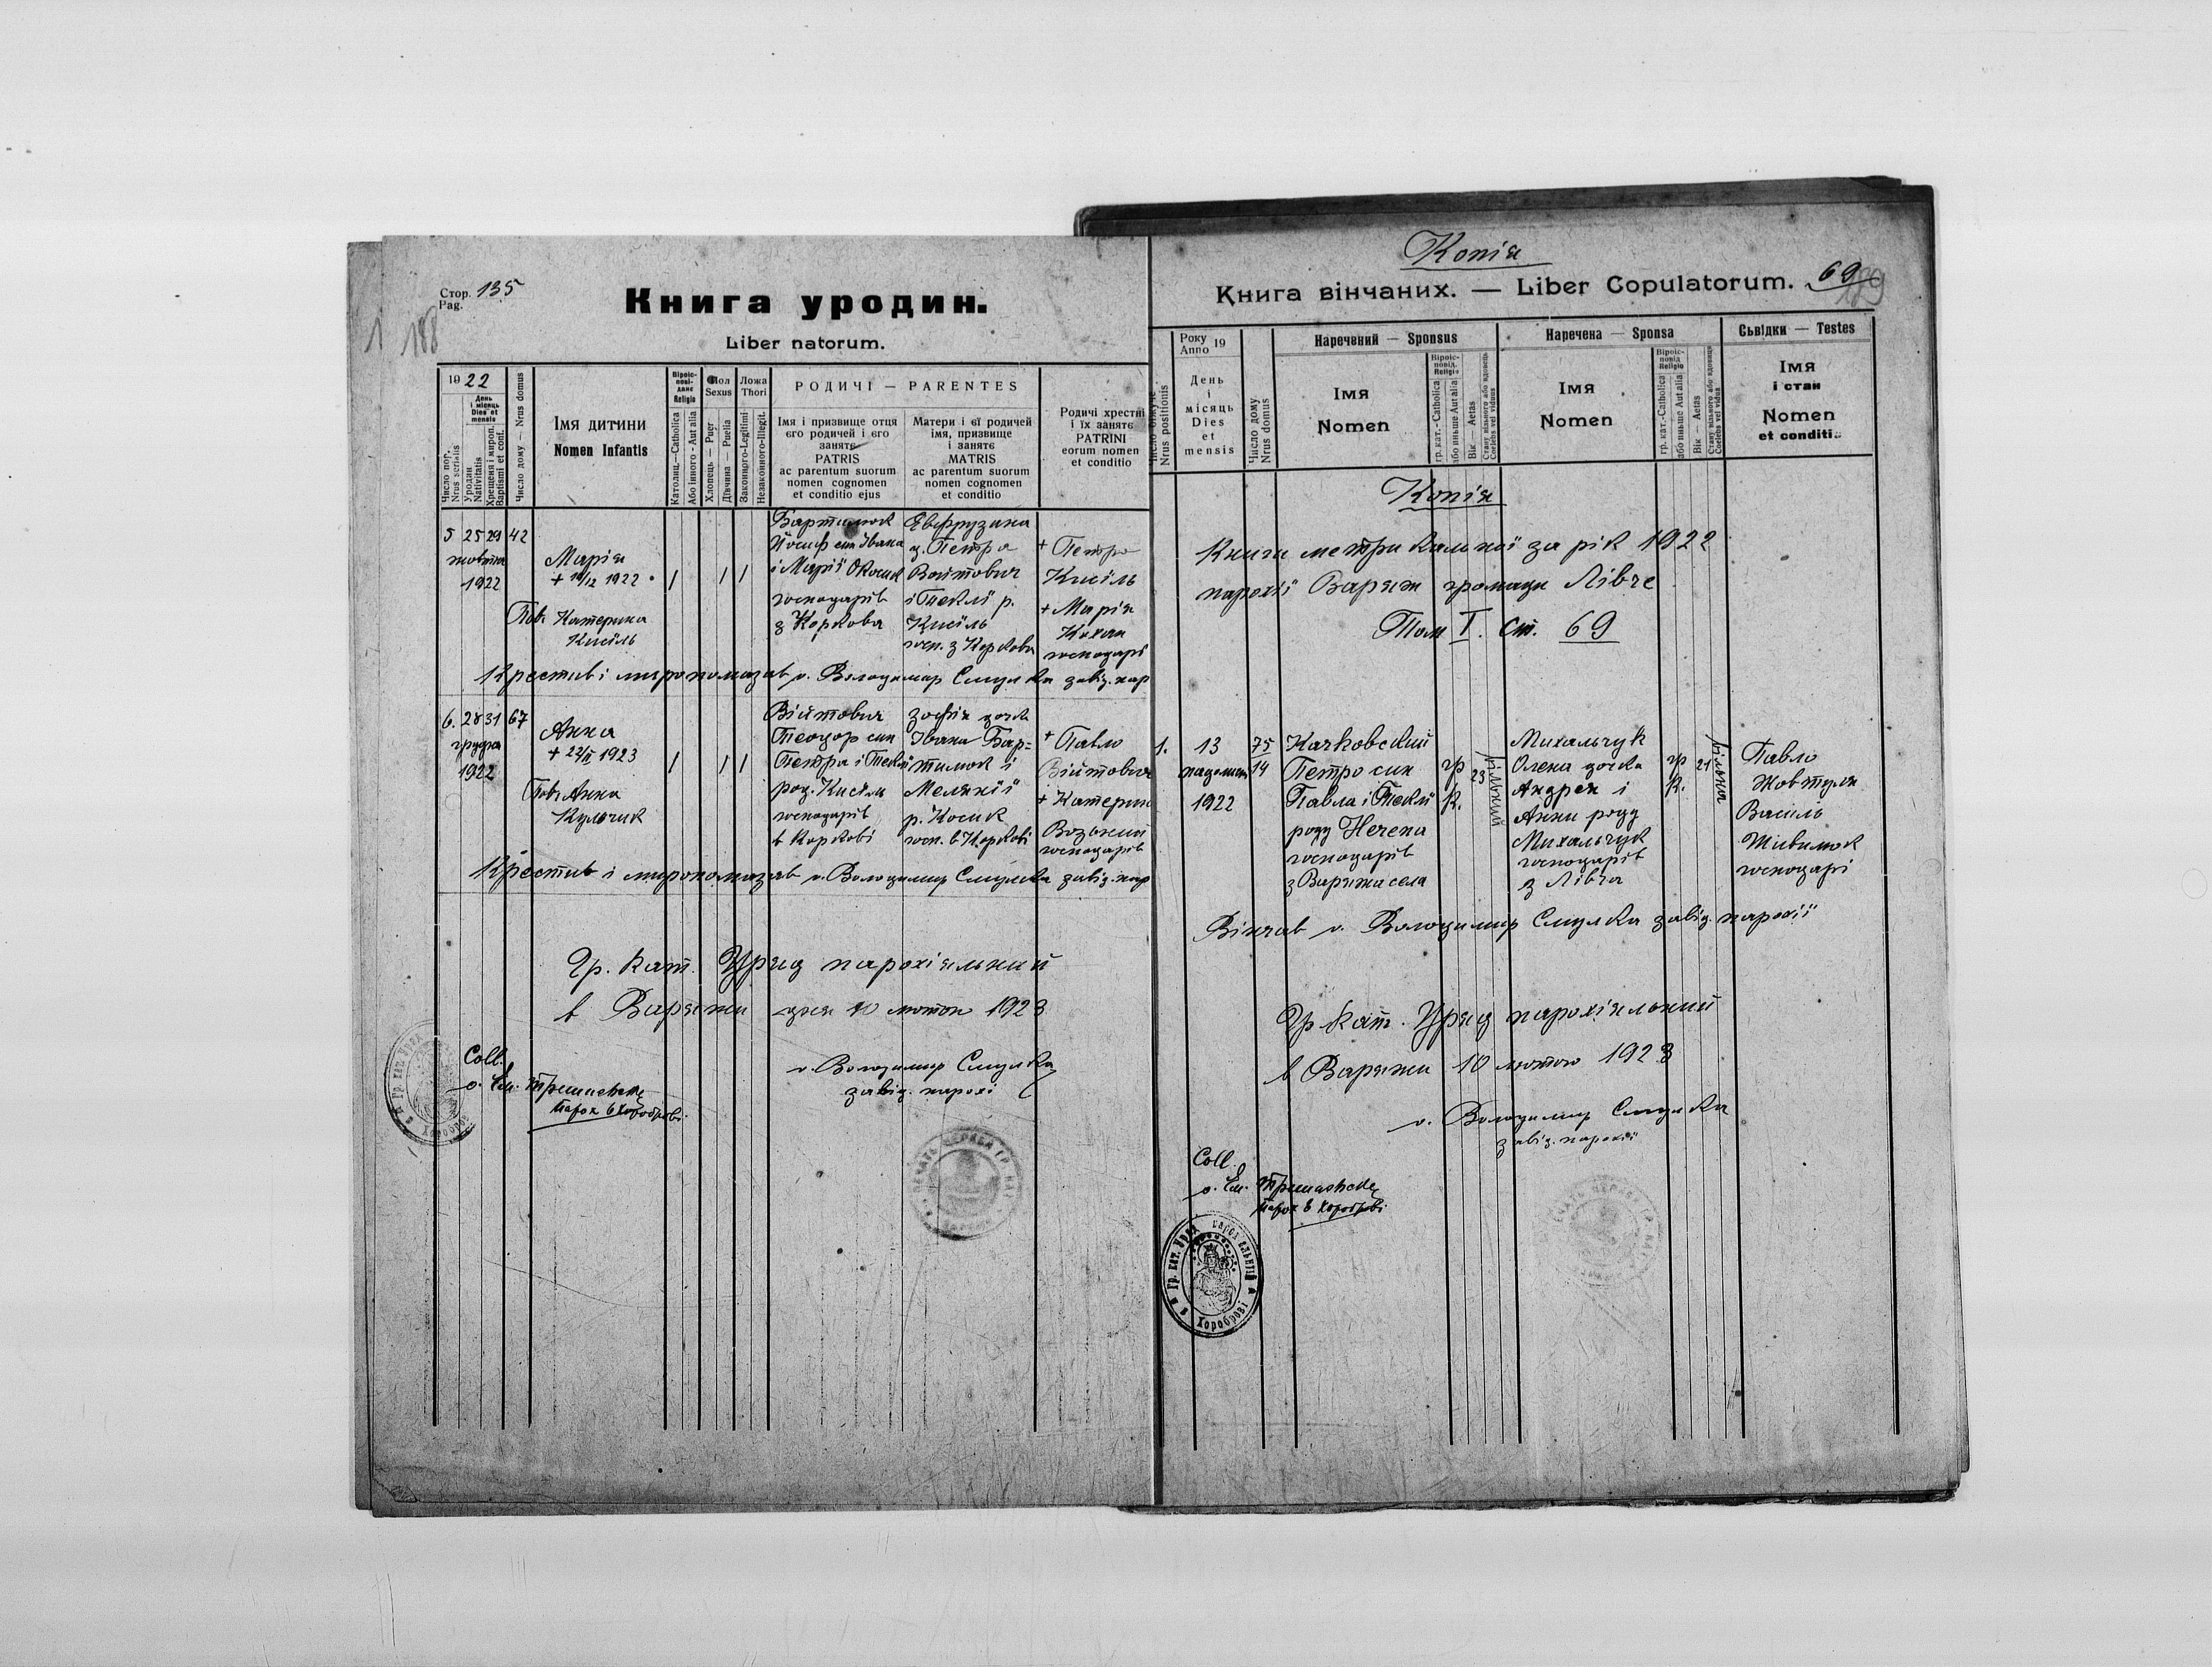 Стор. 135
Pag.
188
Книга уродин.
Liber natorum.
1922
День і місяць Dies et mensis
Число пор. Nrus serialis
Уродин Nativitatis
Хрещеня і миров. Baptismi et conf.
Число дому — Nrus domus
Імя дитини
Nomen Infantis
Віроісповіданє Religio
Католиц.—Catholica
Або инного - Aut alia
Пол Sexus
Хлопець — Puer
Дівчина — Puella
Ложа Thori
Законного-Legitimi
Незаконного-Illegit.
РОДИЧІ — PARENTES
Імя і призвище отця
єго родичей і єго
занятє
PATRIS
ac parentum suorum
nomen cognomen
et conditio ejus
Матери і єї родичей
імя, призвище
і занятє
MATRIS
ac parentum suorum
nomen cognomen
et conditio
Родичі хрестні
і їх занятє
PATRINI
eorum nomen
et conditio
5 25 29 42
жовтня
1922
Марія
+ 10/12 1922
Пов. Катерина
Кисіль
Бартишок
Йосиф син Івана
і Марії
господарів
з Коркова
Евфрузина
д. Петра
Войтович
і Теклї р.
Кисїль
госп. з Коркова
+ Петро
Кисїль
+ Марія
господарі
Крестив і миропомазав о. Володимир Смулка завід. пар
6. 28 31 67
грудня
1922
Анна
+ 22/II 1923
Пов. Анна
Кульчик
Війтович
Теодор син
Петра і Теклї
род. Кисїль
господарів
в Коркові
Зофія дочка
Івана Бар-
тишок і
Мелянїї
р. Косик
госп. в Коркові
+ Павло
Війтович
+ Катерина
господарів
Крестив і миропомазав о. Володимир Смулка завід. пар
Гр. кат. Уряд парохіяльний
в Варяжи дня 10 лютого 1923
о. Володимир Смулка
завід. парохі
Coll.
о. Ем.
парох в Хороброві
Копія
Книга вінчаних. — Liber Copulatorum. 69
189
Nrus positionis
Року Anno 19
День
і
місяць
Dies
et
mensis
Число дому
Nrus domus
Наречений — Sponsus
Імя
Nomen
Віроісповід. Religio
гр. кат. - Catholica
або иньше Aut alia
Вік — Aetas
Стану вільного або вдовець
Coelebs vel viduus
Наречена — Sponsa
Імя
Nomen
Віроісповід Religio
гр. кат. - Catholica
або иньше Aut alia
Вік — Aetas
Стану вільного або вдовиця
Coelebs vel vidua
Сьвідки — Testes
Імя
і стан
Nomen
et conditio
Копія
Книги метрикальної за рік 1922
парохії Варяж громади Лівче
Том I. ст. 69
1. 13 75 14
падолиста
1922
Качковский
Петро син
Павла і Теклї
роду Нечепа
господарів
з Варяжа села
гр. к. 23 вільний
Михальчук
Олена дочка
Андрея і
Анни роду
Михальчук
господарів
з Лівча
гр. к. 21 вільна
Павло
Жовтуля
Василь
господарі
Вінчав о. Володимир Смулка завід. парохії
Гр. кат. Уряд парохіяльний
в Варяжи 10 лютого 1923
о. Володимир Смулка
завід. парохії
Coll.
о. Ем.
парох в Хороброві
Гр. кат. Уряд парохіяльний в Хороброві